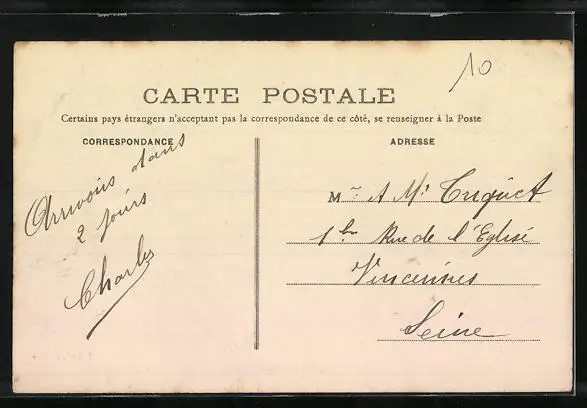 10
CARTE POSTALE
Certains pays étrangers n'acceptant pas la correspondance de ce côté, se renseigner à la Poste
CORRESPONDANCE
Arrivons dans
2 jours
Charles
ADRESSE
M A Mr Criquet
Rue de l'Eglise
Vincennes
Seine